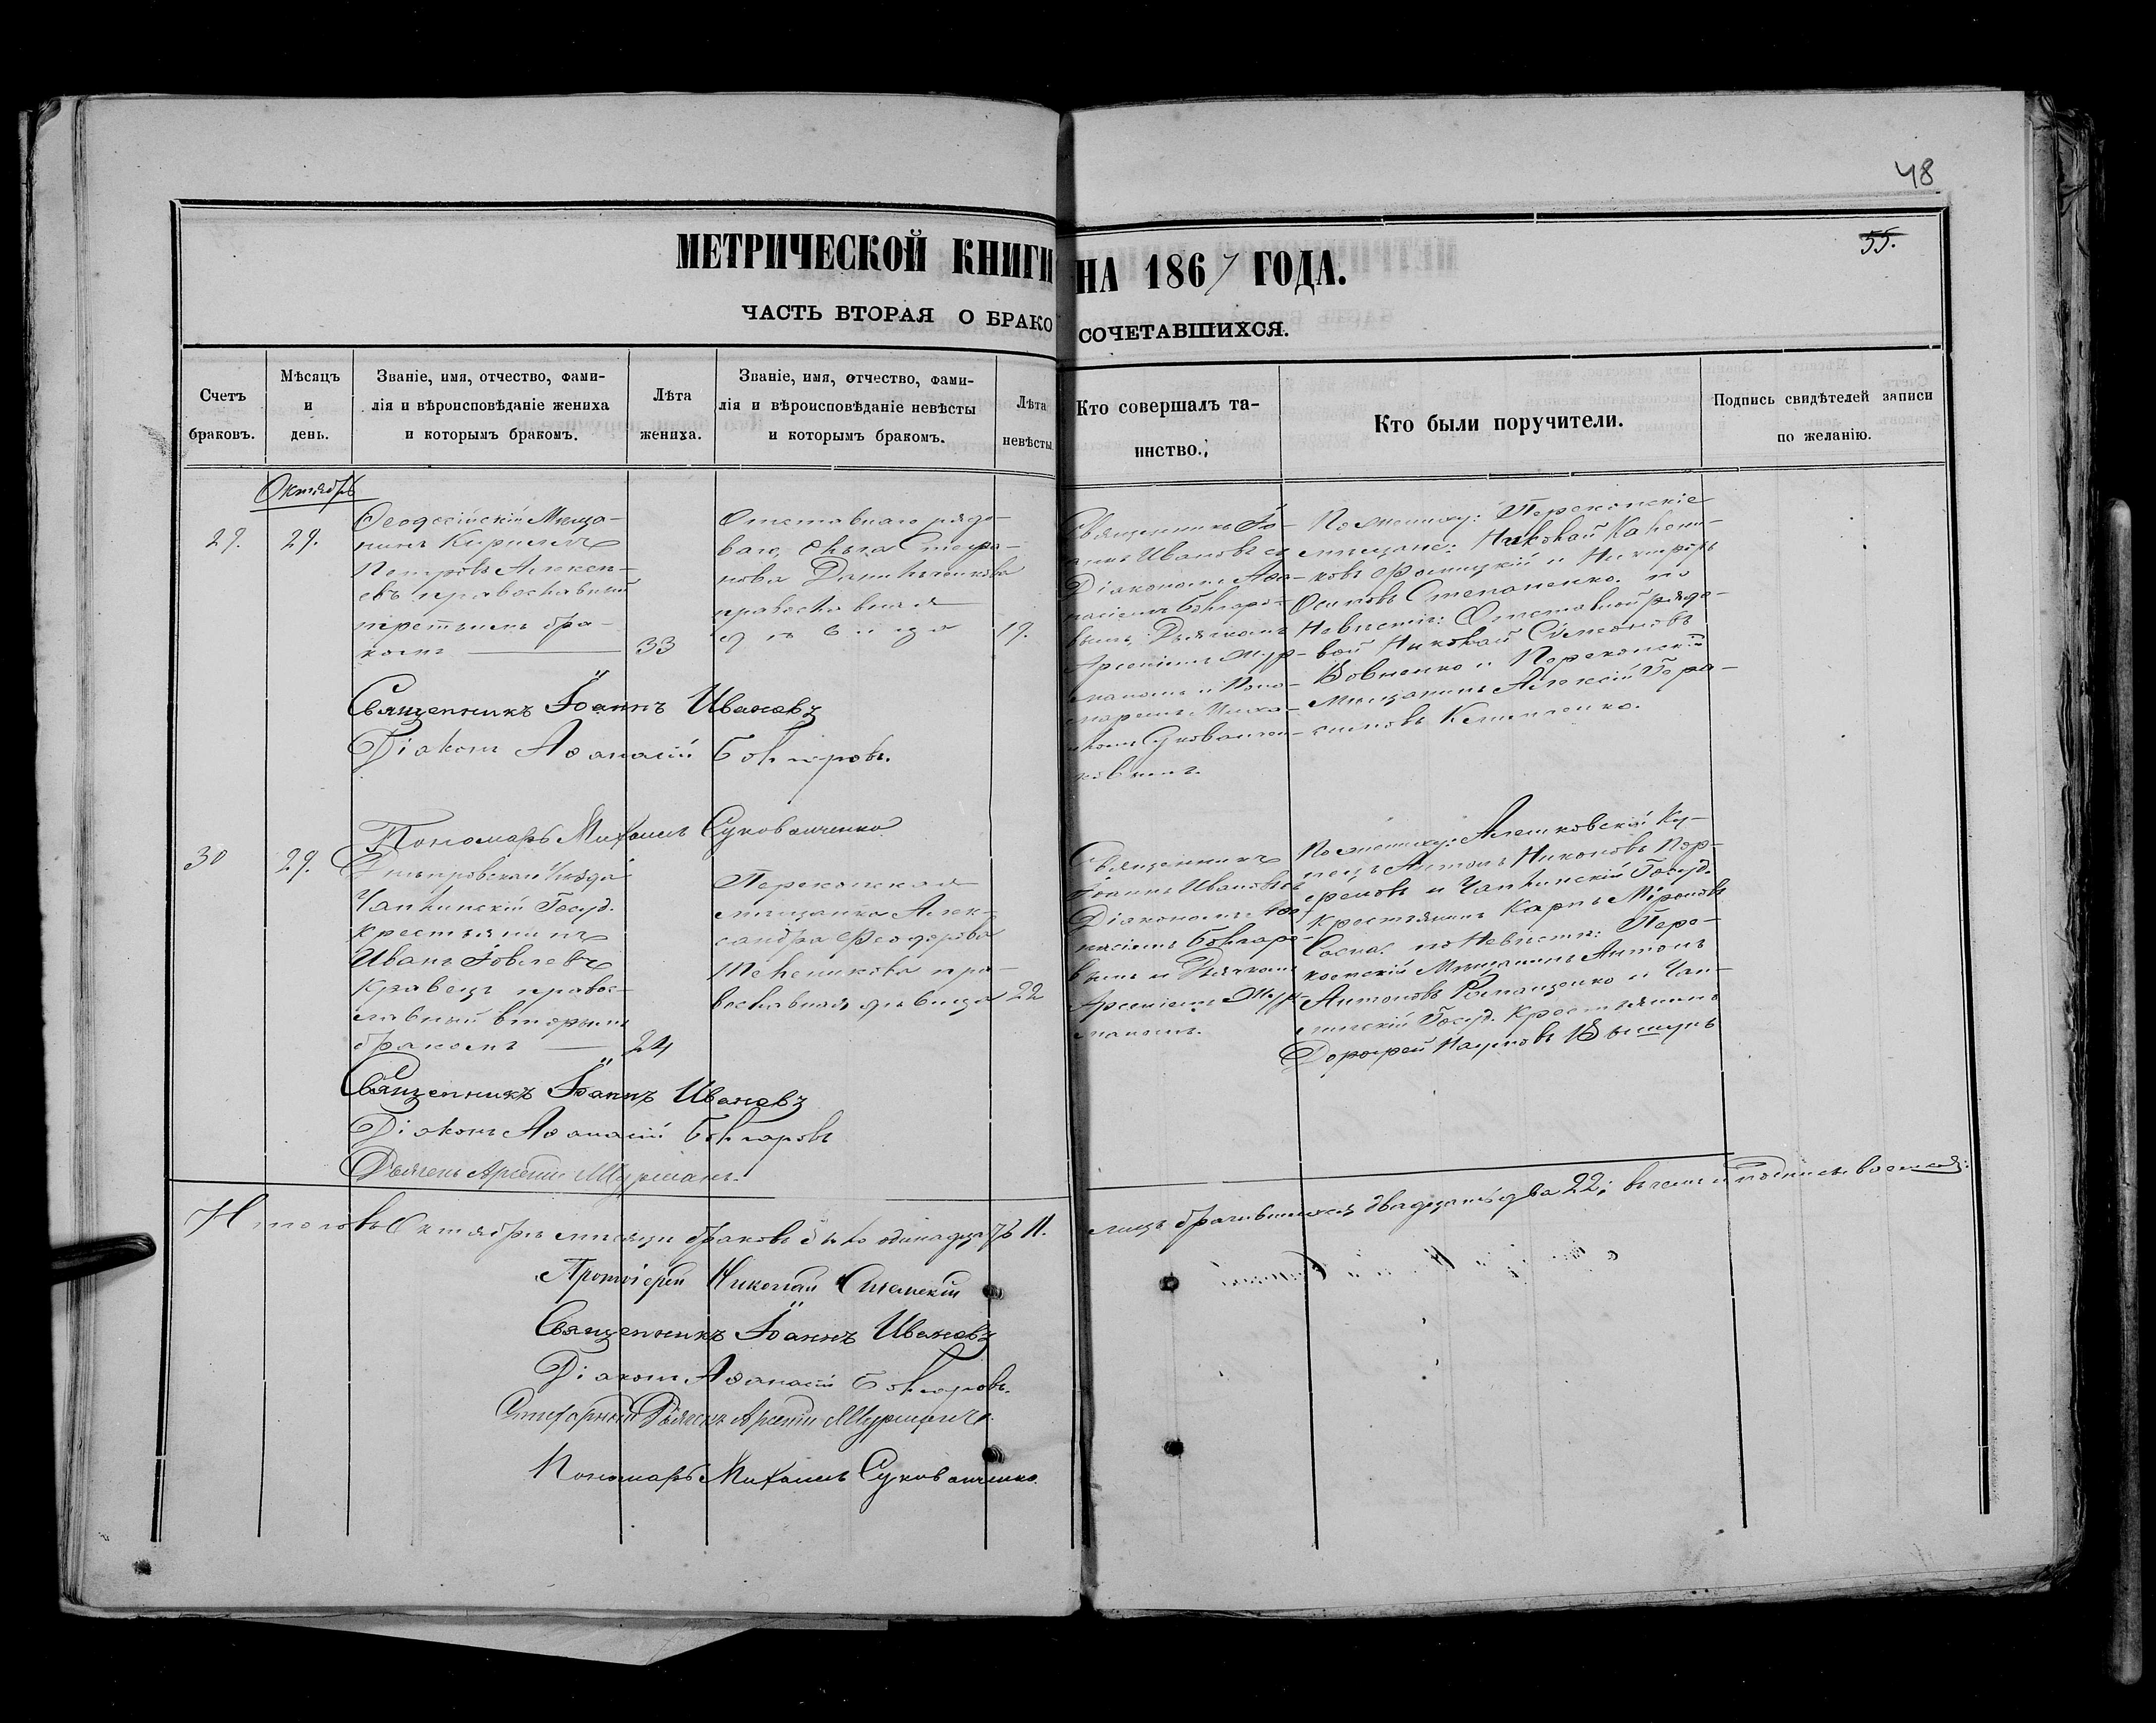 48
55.
МЕТРИЧЕСКОЙ КНИГИ НА 1867 ГОДА.
ЧАСТЬ ВТОРАЯ О БРАКОСОЧЕТАВШИХСЯ.
Счетъ
браковъ.
Мѣсяцъ
и
день.
Званіе, имя, отчество, фами-
лія и вѣроисповѣданіе жениха
и которымъ бракомъ.
Лѣта
жениха.
Званіе, имя, отчество, фами-
лія и вѣроисповѣданіе невѣсты
и которымъ бракомъ.
Лѣта
невѣсты.
Кто совершалъ та-
инство.
Кто были поручители.
Подпись свидѣтелей записи
по желанію.
Октябрь
29.
29.
Ѳеодосійскій Мѣща-
нинъ Кириллъ
Петровъ Алексѣ-
евъ православный
третьимъ бра-
комъ
33
Отставнаго рядо-
ваго,
православная
дѣвица
19.
Священникъ Іо-
аннъ Ивановъ съ
Діакономъ Аѳа-
насіемъ Болгаро-
вымъ, Дьячкомъ
Арсеніемъ Шур-
маномъ и Поно-
маремъ Миха-
иломъ Суковатчен-
ковымъ.
По жениху: Перекопскіе
мѣщане: Николай
Осиповъ Степаненко. по
Невѣстѣ: Отставной рядо-
вой Николай Симоновъ
Вовненко и Перекопскій
Мѣщанинъ Алексій Гера-
симовъ
Священникъ Іоаннъ Ивановъ
Діаконъ Аѳанасій Болгаровъ.
Пономарь Михаилъ Суковатченко
30
29.
Днѣпровскаго Уѣзда
Чаплинскій Госуд.
крестьянинъ
Иванъ Іовлевъ
Кравецъ правос-
лавный вторымъ
бракомъ
24
Перекопская
мѣщанка Алек-
сандра Ѳеодорова
пра-
вославная дѣвица
22
Священникъ
Іоаннъ Ивановъ съ
Діакономъ Аѳа-
насіемъ Болгаро-
вымъ и Дьячкомъ
Арсеніемъ Шур-
маномъ.
По жениху: Алешковскій Ку-
пецъ Антонъ Никоновъ
и Чаплинскій Госуд.
Крестьянинъ Карпъ Міроновъ
Сосна. по Невѣстѣ: Пере-
копскій Мѣщанинъ Антонъ
Антоновъ Романщенко и Чап-
линскій Госуд. Крестьянинъ
Дорофей Наумовъ
Священникъ Іоаннъ Ивановъ
Діаконъ Аѳанасій Болгаровъ
Дьячекъ Арсеній Шурманъ.
Итого въ Октябрѣ мѣсяцѣ браковъ было одинадцать 11. лицъ брачившихся двадцать два 22; въ чемъ и подписываемся:
Протоіерей Николай
Священникъ Іоаннъ Ивановъ
Діаконъ Аѳанасій Болгаровъ.
Дьячекъ Арсеній Шурманъ.
Пономарь Михаилъ Суковатченко.